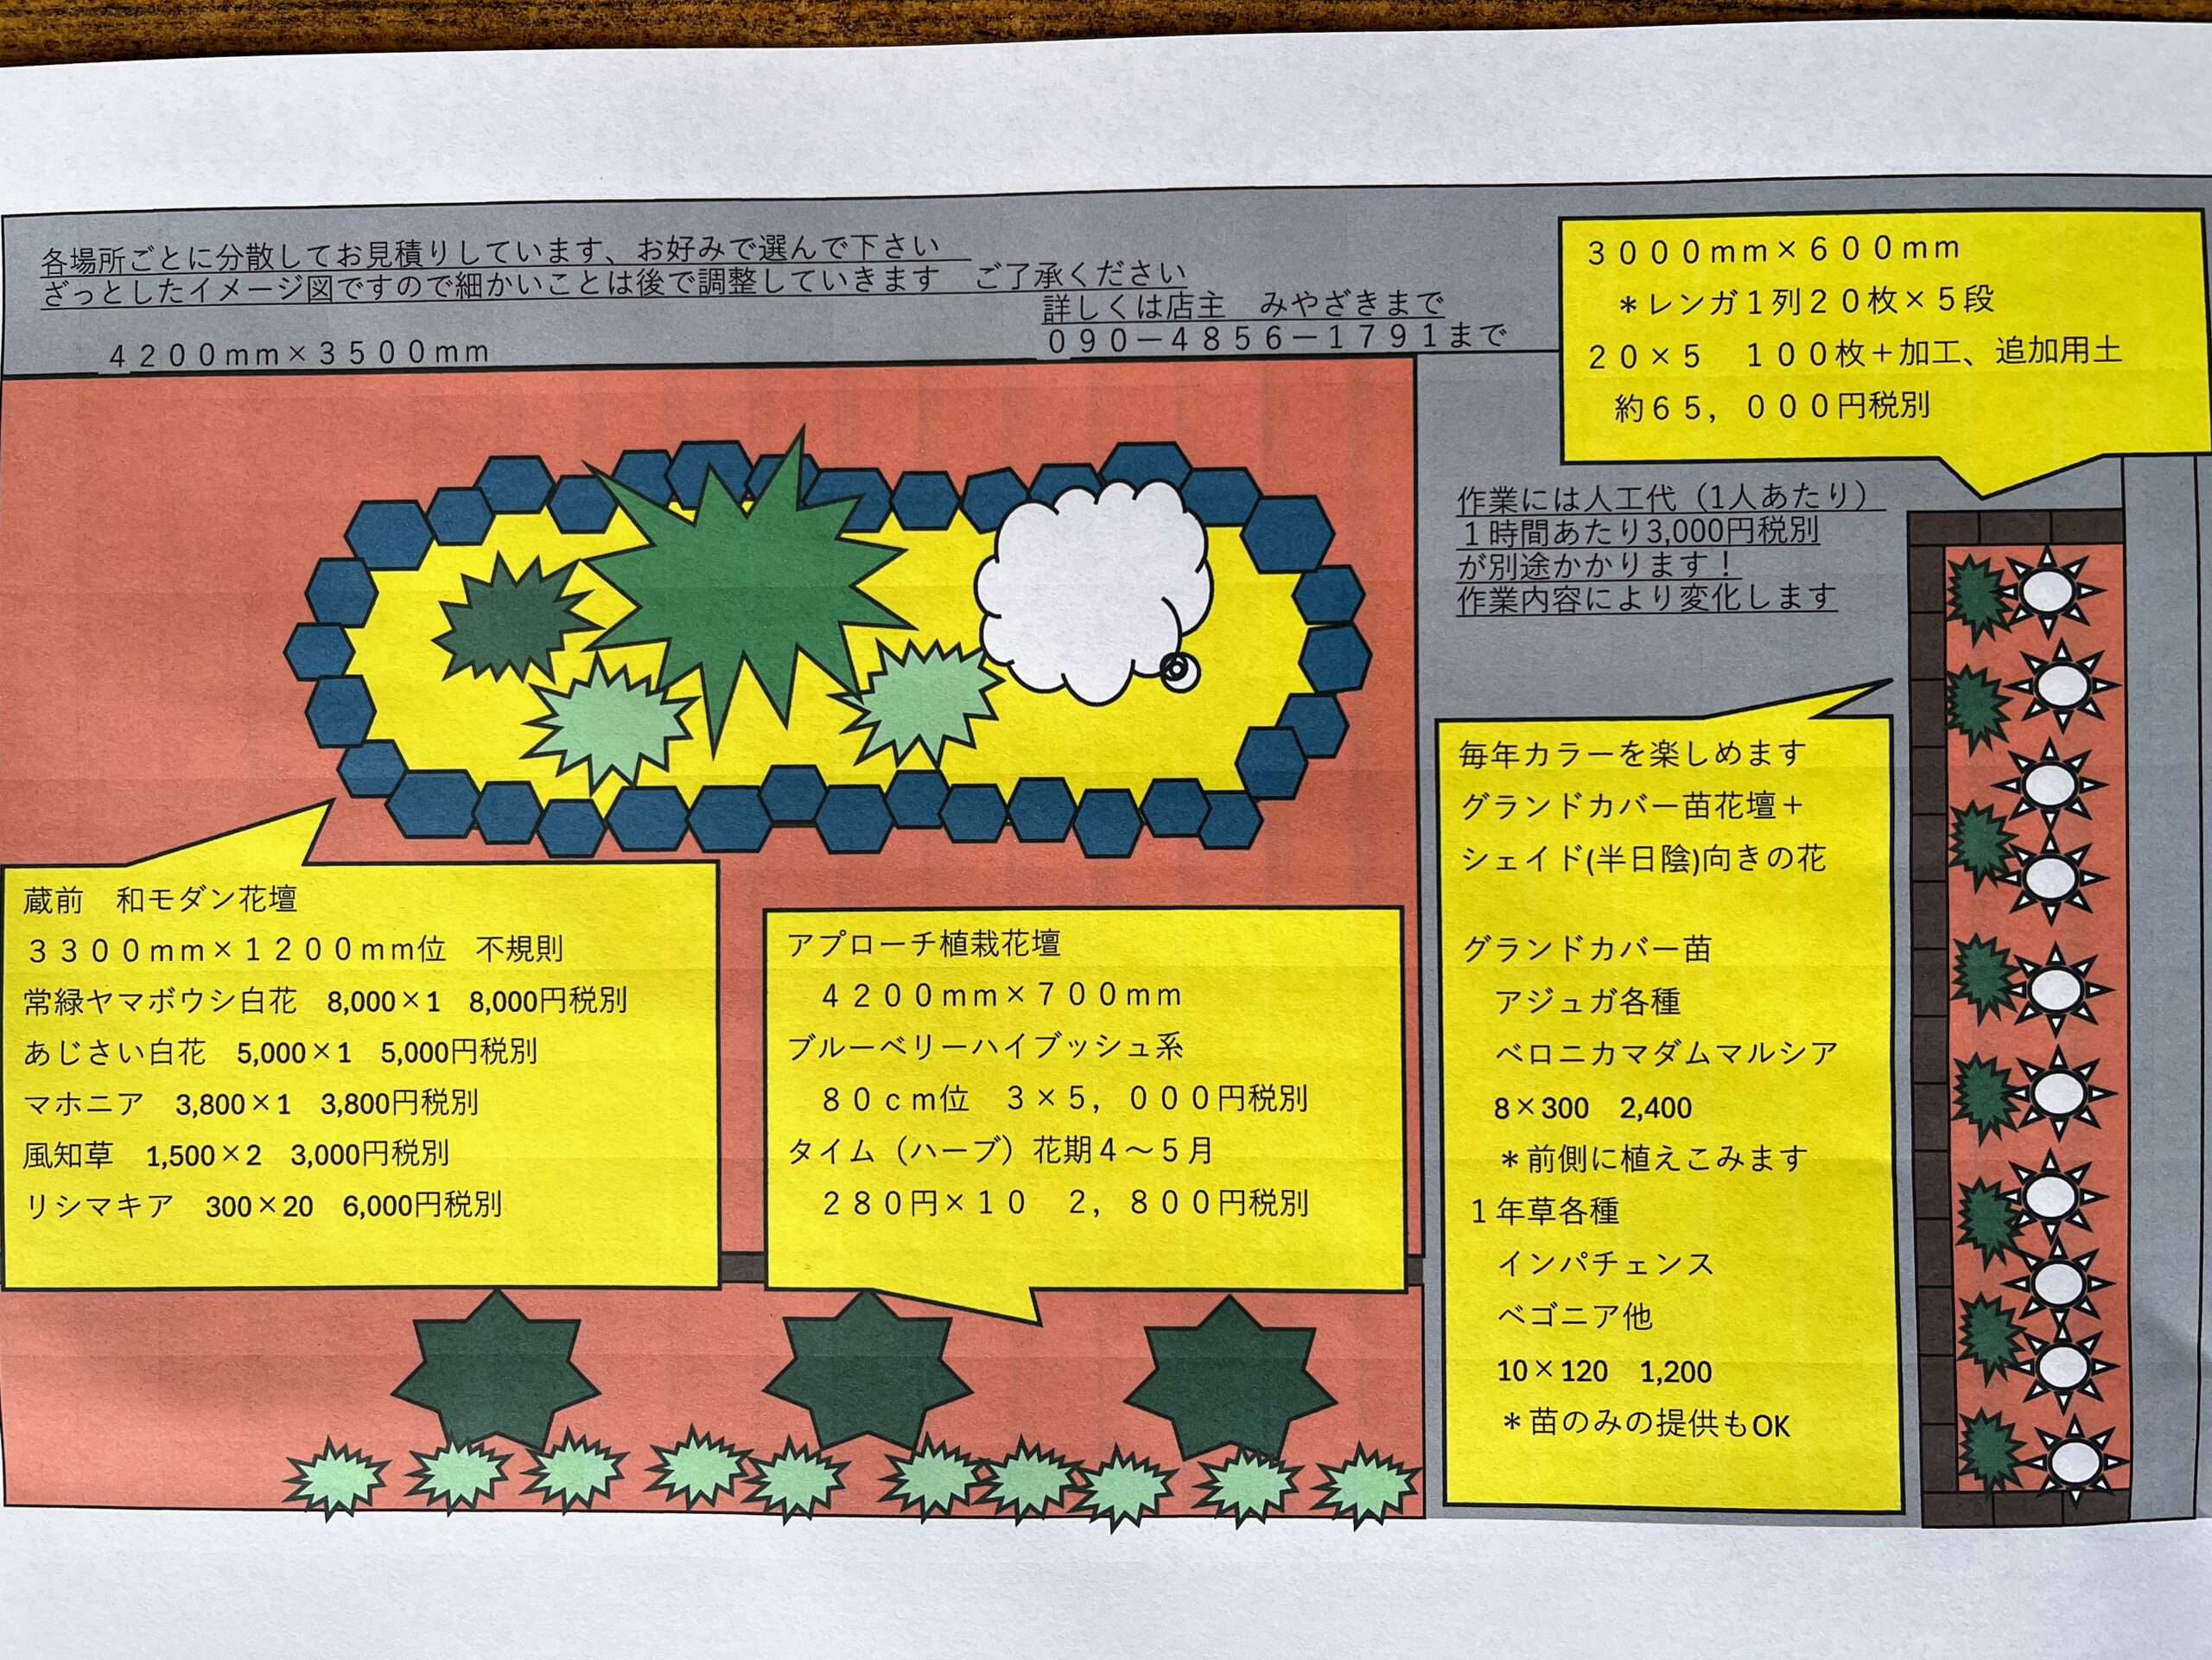 各場所ごとに分散してお見積りしています、お好みで選んで下さい
ざっとしたイメージ図ですので細かいことは後で調整していきます　ご了承ください
詳しくは店主　みやざきまで
０９０－４８５６－１７９１まで
４２００ｍｍ×３５００ｍｍ
３０００ｍｍ×６００ｍｍ
＊レンガ１列２０枚×５段
２０×５　１００枚＋加工、追加用土
約６５，０００円税別
作業には人工代（1人あたり）
１時間あたり3,000円税別
が別途かかります！
作業内容により変化します
蔵前　和モダン花壇
３３００ｍｍ×１２００ｍｍ位　不規則
常緑ヤマボウシ白花　8,000×1　8,000円税別
あじさい白花　5,000×1　5,000円税別
マホニア　3,800×1　3,800円税別
風知草　1,500×2　3,000円税別
リシマキア　300×20　6,000円税別
アプローチ植栽花壇
４２００ｍｍ×７００ｍｍ
ブルーベリーハイブッシュ系
８０ｃｍ位　３×５，０００円税別
タイム（ハーブ）花期４～５月
２８０円×１０　２，８００円税別
毎年カラーを楽しめます
グランドカバー苗花壇＋
シェイド(半日陰)向きの花
グランドカバー苗
アジュガ各種
ベロニカマダムマルシア
8×300　2,400
＊前側に植えこみます
１年草各種
インパチェンス
ベゴニア他
10×120　1,200
＊苗のみの提供もOK